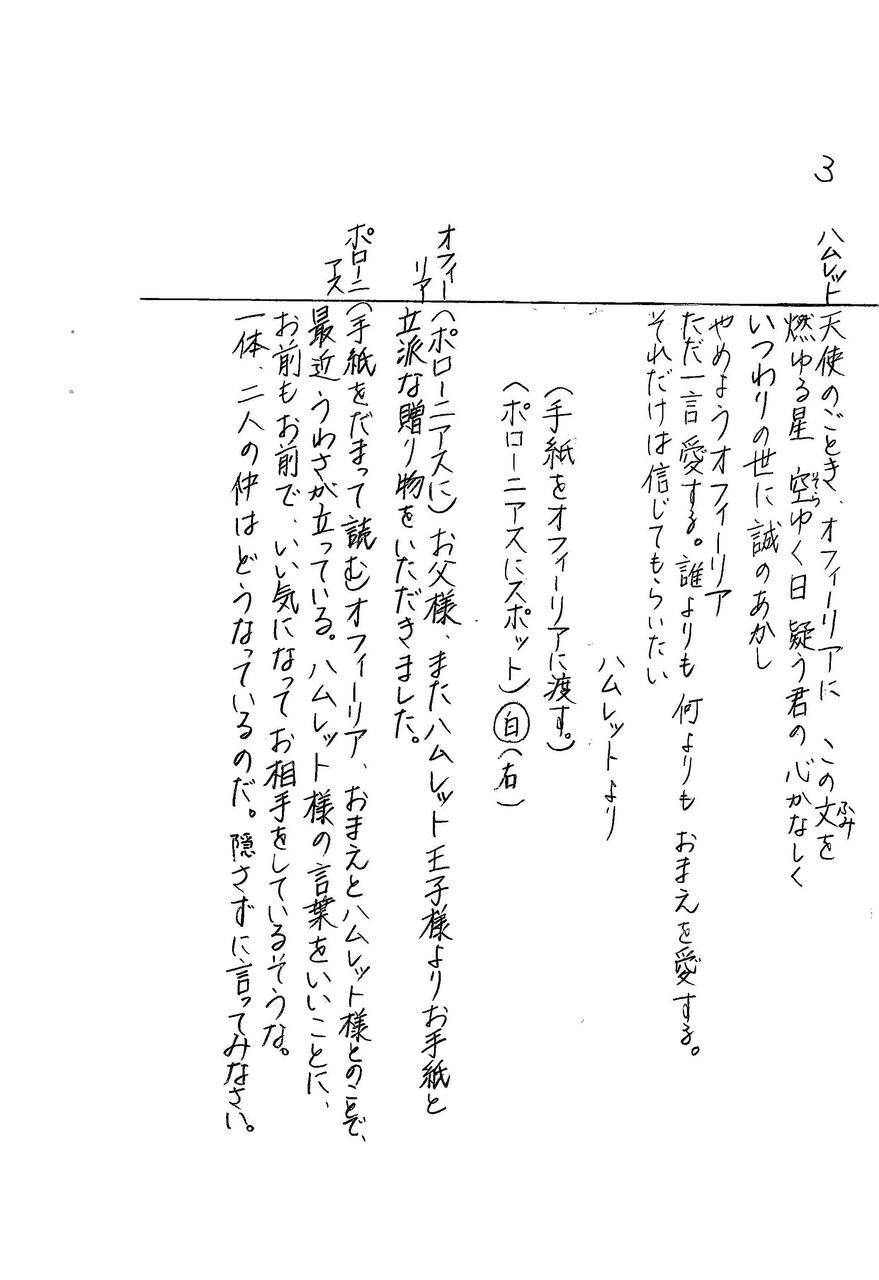 3
ハムレット 天使のごとき、オフィーリアに この文を
ふみ
燃ゆる星 空ゆく日 疑う君の 心かなしく
そら
いつわりの世に 誠のあかし
やめようオフィーリア
ただ一言 愛する。誰よりも 何よりも おまえを愛する。
それだけは信じてもらいたい
ハムレットより
(手紙をオフィーリアに渡す。)
(ポローニアスにスポット) 白 (右)
オフィーリア (ポローニアスに) お父様、またハムレット王子様よりお手紙と
立派な贈り物をいただきました。
ポローニアス (手紙をだまって読む) オフィーリア、おまえとハムレット様とのことで、
最近うわさが立っている。ハムレット様の言葉をいいことに、
お前もお前で、いい気になってお相手をしているそうな。
一体、二人の仲はどうなっているのだ。隠さずに言ってみなさい。